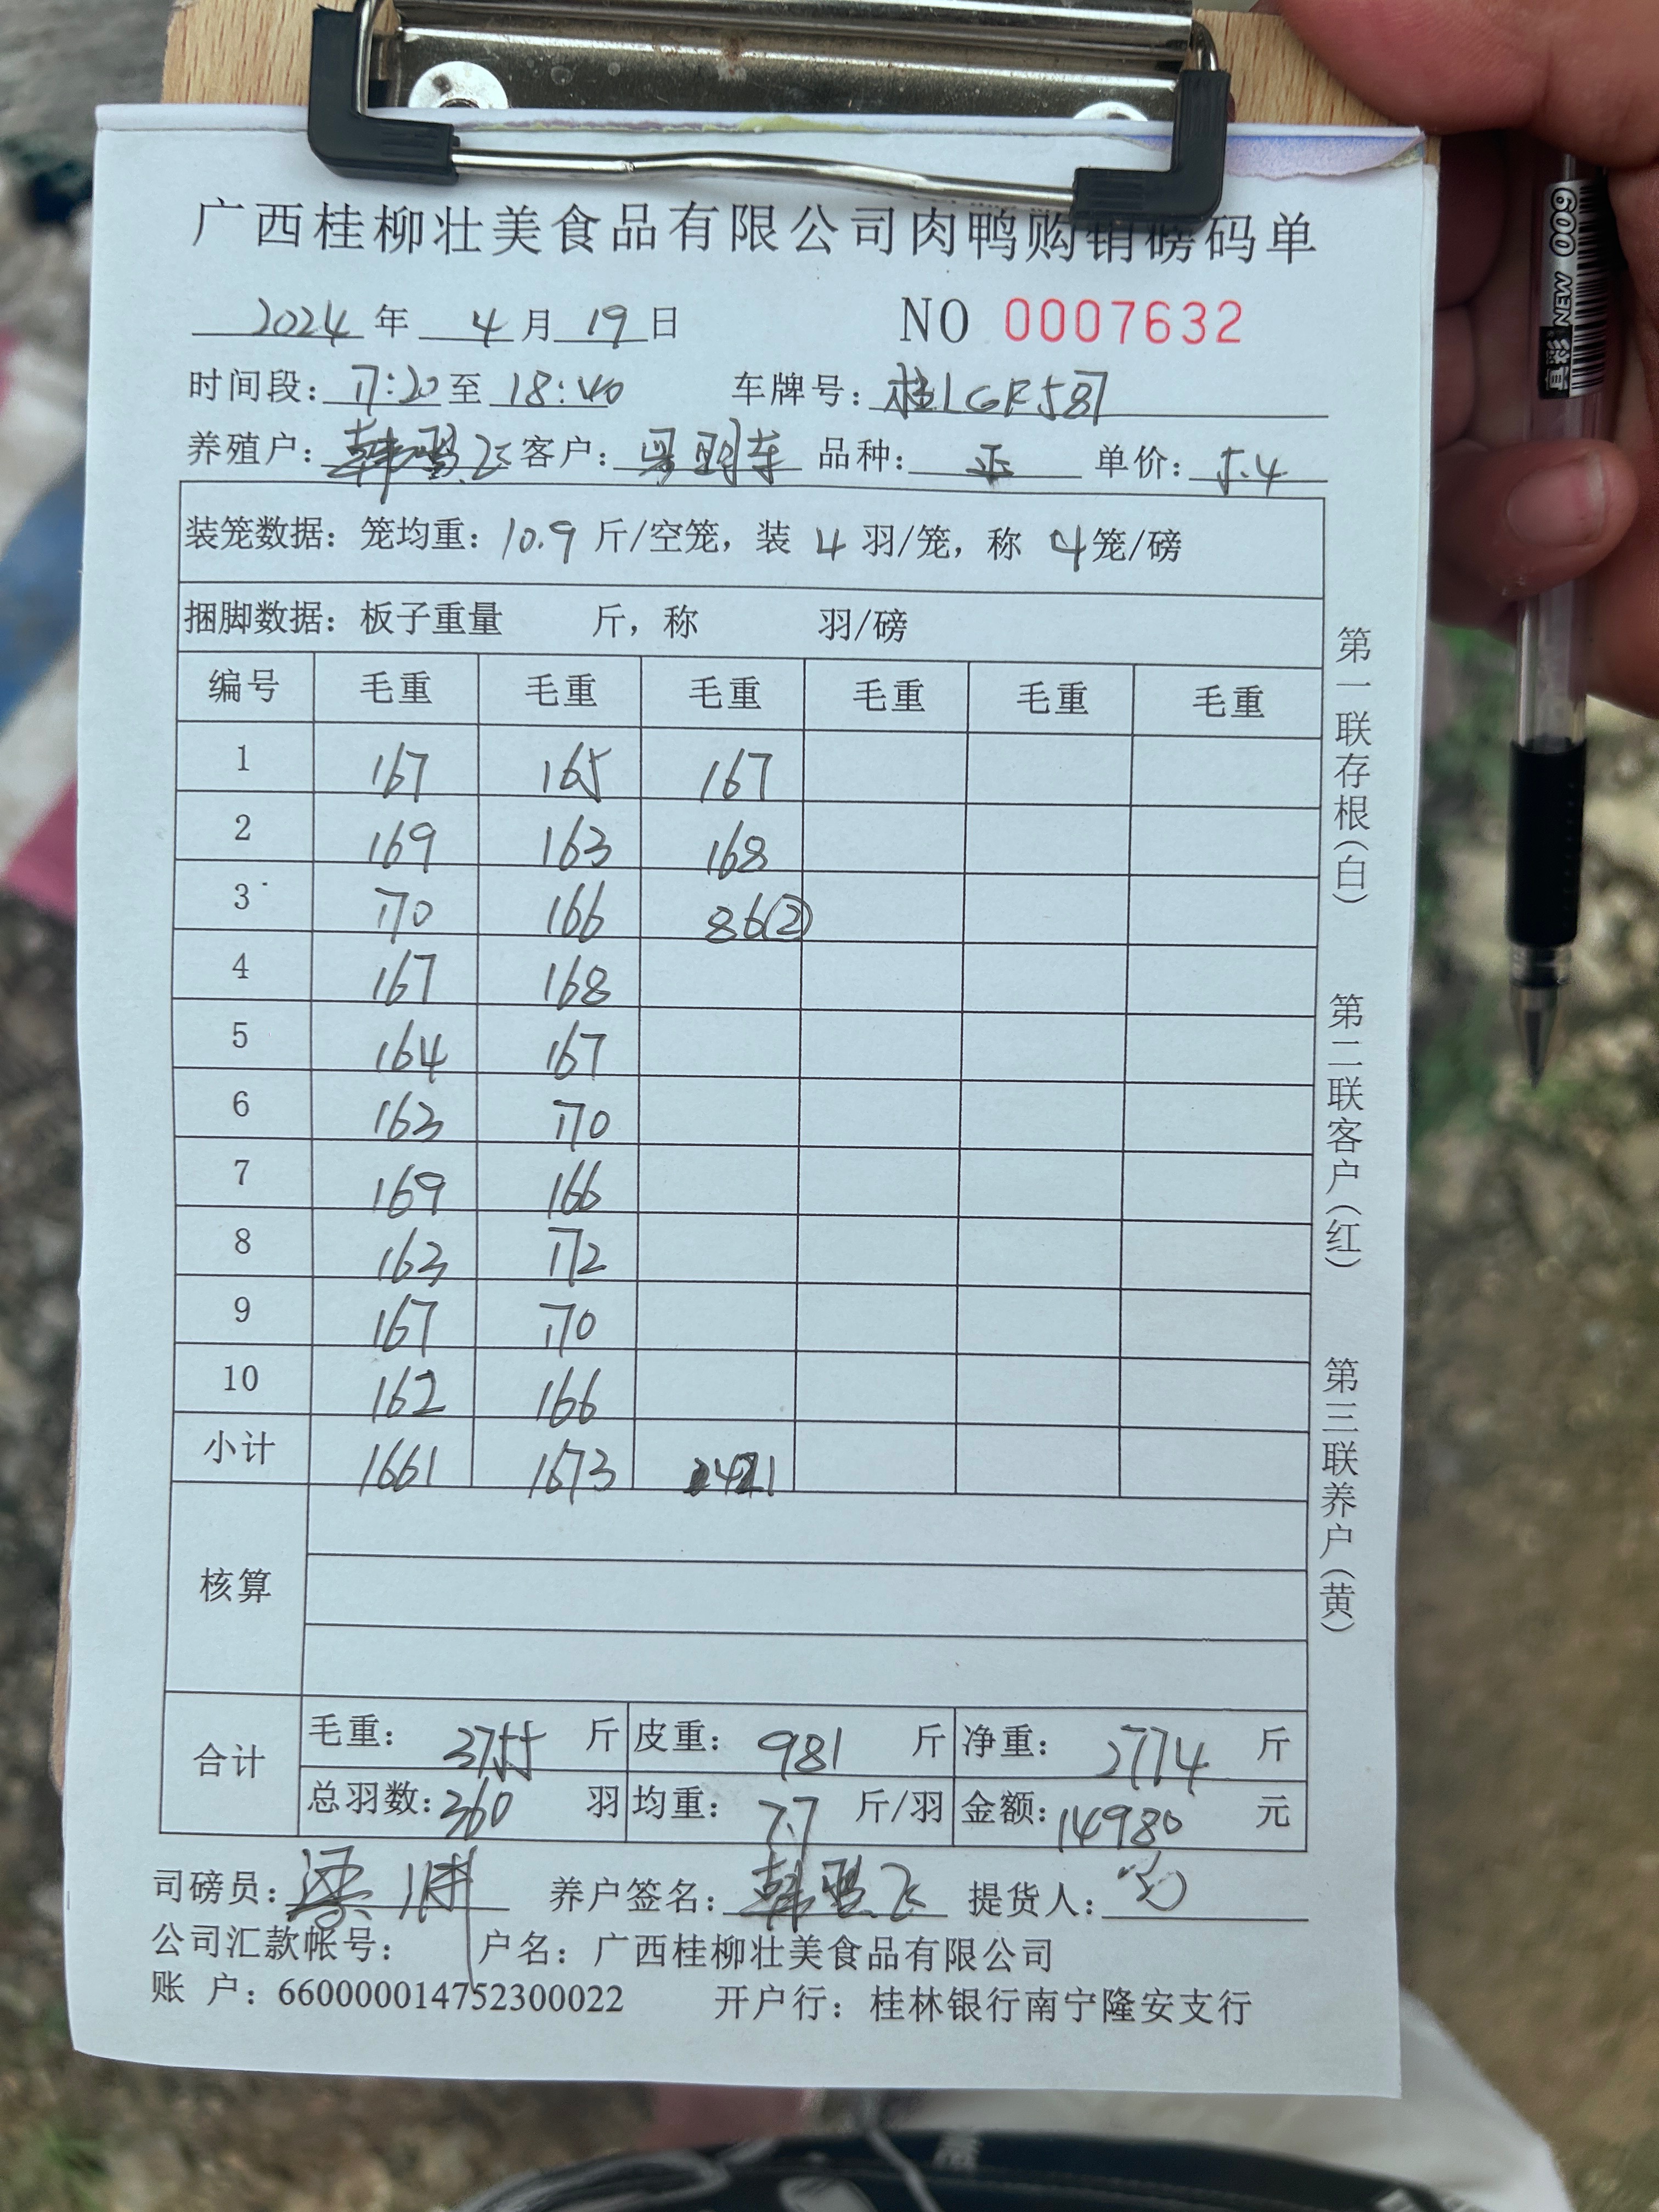 广西桂柳壮美食品有限公司肉鸭购销磅码单
2024 年 4 月 19 日 NO 0007632
时间段: 17:20 至 18:40 车牌号: 桂LGF587
养殖户: 韩 飞 客户: 明车 品种: 单价: 5.4
装笼数据: 笼均重: 10.9 斤/空笼, 装 4 羽/笼, 称 4 笼/磅
捆脚数据: 板子重量 斤, 称 羽/磅
编号 毛重 毛重 毛重 毛重 毛重 毛重
1 167 165 167
2 169 163 168
3 170 166 86(2)
4 167 168
5 164 167
6 163 170
7 169 166
8 163 172
9 167 170
10 162 166
小计 1661 1673 421
核算
合计 毛重: 3755 斤 皮重: 981 斤 净重: 2774 斤
总羽数: 360 羽 均重: 7.7 斤/羽 金额: 14980 元
司磅员: 梁 养户签名: 韩 飞 提货人:
公司汇款帐号: 户名: 广西桂柳壮美食品有限公司
账 户: 660000014752300022 开户行: 桂林银行南宁隆安支行
第一联存根(白)
第二联客户(红)
第三联养户(黄)
真彩 NEW 009